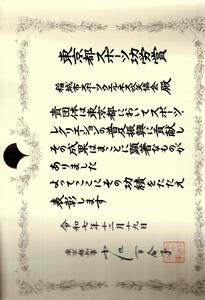 東京都スポーツ功労賞
稲城市スポーツウエルネス吹矢協会 殿
貴団体は東京都においてスポーツ・
レクリエーションの普及振興に貢献し
その成果はまことに顕著なものが
ありました
よってここにその功績をたたえ
表彰します
令和七年十二月十九日
東京都知事 小池百合子